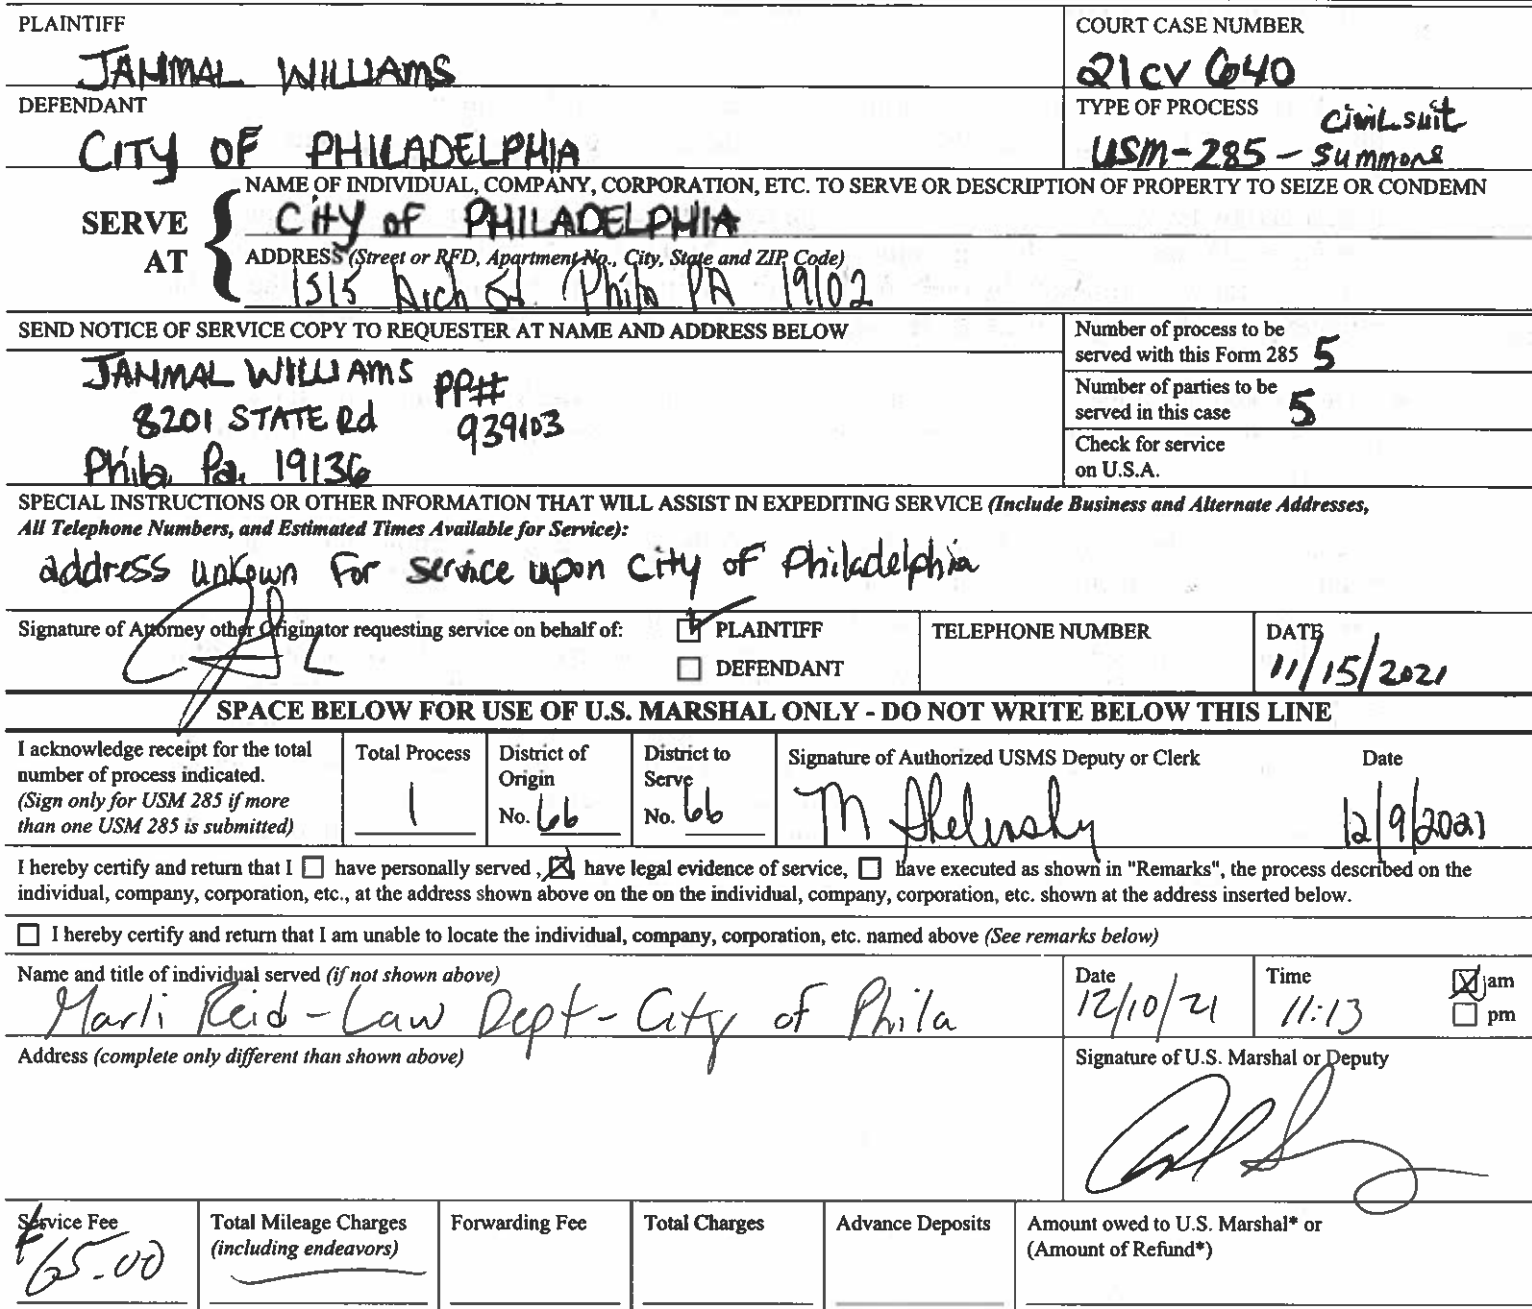 PLAINTIFF
JAHMAL WILLIAMS
COURT CASE NUMBER
21CV 640
DEFENDANT
CITY OF PHILADELPHIA
TYPE OF PROCESS
Civil suit
USM-285 - Summons
SERVE AT
NAME OF INDIVIDUAL, COMPANY, CORPORATION, ETC. TO SERVE OR DESCRIPTION OF PROPERTY TO SEIZE OR CONDEMN
City of PHILADELPHIA
ADDRESS (Street or RFD, Apartment No., City, State and ZIP Code)
1515 Arch St. Phila PA 19102
SEND NOTICE OF SERVICE COPY TO REQUESTER AT NAME AND ADDRESS BELOW
JAHMAL WILLIAMS PP#
8201 STATE Rd 939103
Phila Pa. 19136
Number of process to be
served with this Form 285 5
Number of parties to be
served in this case 5
Check for service
on U.S.A.
SPECIAL INSTRUCTIONS OR OTHER INFORMATION THAT WILL ASSIST IN EXPEDITING SERVICE (Include Business and Alternate Addresses,
All Telephone Numbers, and Estimated Times Available for Service):
address unkown For service upon City of Philadelphia
Signature of Attorney other Originator requesting service on behalf of:
PLAINTIFF
DEFENDANT
TELEPHONE NUMBER
DATE
11/15/2021
SPACE BELOW FOR USE OF U.S. MARSHAL ONLY - DO NOT WRITE BELOW THIS LINE
I acknowledge receipt for the total
number of process indicated.
(Sign only for USM 285 if more
than one USM 285 is submitted)
Total Process
1
District of
Origin
No. 66
District to
Serve
No. 66
Signature of Authorized USMS Deputy or Clerk
M
Date
12/9/2021
I hereby certify and return that I have personally served , have legal evidence of service, have executed as shown in "Remarks", the process described on the
individual, company, corporation, etc., at the address shown above on the on the individual, company, corporation, etc. shown at the address inserted below.
I hereby certify and return that I am unable to locate the individual, company, corporation, etc. named above (See remarks below)
Name and title of individual served (if not shown above)
Marli Reid - Law Dept - City of Phila
Date
12/10/21
Time
11:13
am
pm
Address (complete only different than shown above)
Signature of U.S. Marshal or Deputy
Service Fee
65.00
Total Mileage Charges
(including endeavors)
Forwarding Fee
Total Charges
Advance Deposits
Amount owed to U.S. Marshal* or
(Amount of Refund*)